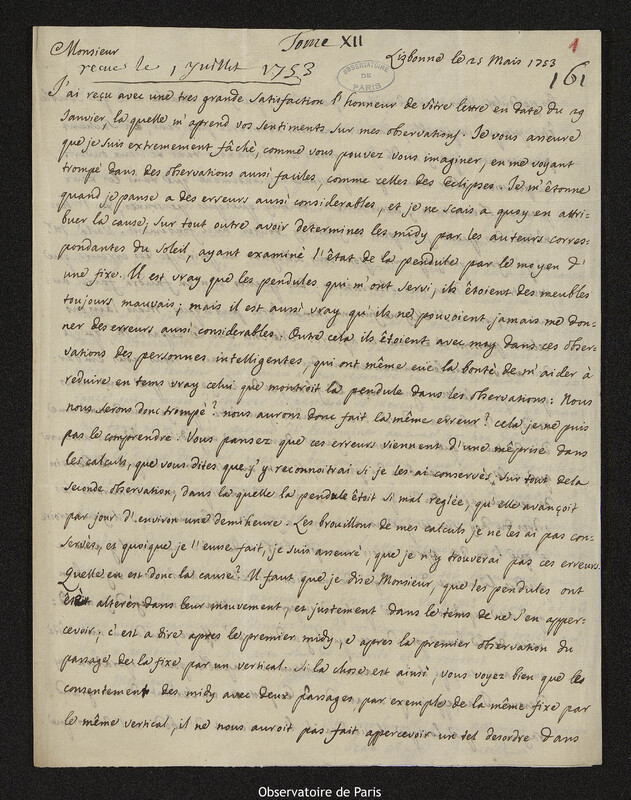 Tome XII
1
Monsieur
Lisbonne le 25 Mais 1753
161
recue le 1 Juillet 1753
OBSERVATOIRE DE PARIS
J'ai reçu avec une tres grande satisfaction l'honneur de vôtre lettre en date du 29
Janvier, la quelle m'aprend vos sentiments sur mes observations. Je vous asseure
que je suis extremement fâché, comme vous pouvez vous imaginer, en me voyant
trompé dans des observations aussi faciles, comme celles des Eclipses. Je m'étonne
quand je panse a des erreurs aussi considerables, et je ne scais a quoy en attri-
buer la cause, sur tout outre avoir determinés les midy par les auteurs corres-
pondantes du soleil, ayant examiné l'état de la pendule par le moyen d'
une fixe. Il est vray que les pendules qui m'ont servi, ils étoient des meubles
toujours mauvais; mais il est aussi vray qu'ils ne pouvoient jamais me don-
ner des erreurs aussi considerables. Outre cela ils étoient avec moy dans ces obser-
vations des personnes intelligentes, qui ont même euë la bonté de m'aider à
réduire en tems vray celui que montroit la pendule dans les observations: Nous
nous serons donc trompé? nous aurons donc fait la même erreur? cela je ne puis
pas le comprendre. Vous pansez que ces erreurs viennent d'une méprise dans
les calculs, que vous dites que j'y reconnoitrai si je les ai conservés, sur tout dela
seconde observation, dans la quelle la pendule étoit si mal reglée, qu'elle avançoit
par jour d'environ une demiheure. Les brouillons de mes calculs je ne les ai pas con-
servés, et quoique je l'eusse fait, je suis asseuré que je n'y trouverai pas ces erreurs.
Quelle en est donc la cause? Il faut que je dise Monsieur, que les pendules ont
été alterés dans leur mouvement, et justement dans le tems de ne s'en apper-
cevoir, c'est a dire apres le premier midy, e apres la premier observation du
passage de la fixe par un vertical. Si la chose est ainsi, vous voyez bien que les
consentement des midy avec deux passages par exemple de la même fixe par
le même vertical, il ne nous auroit pas fait appercevoir un tel desordre dans
Observatoire de Paris